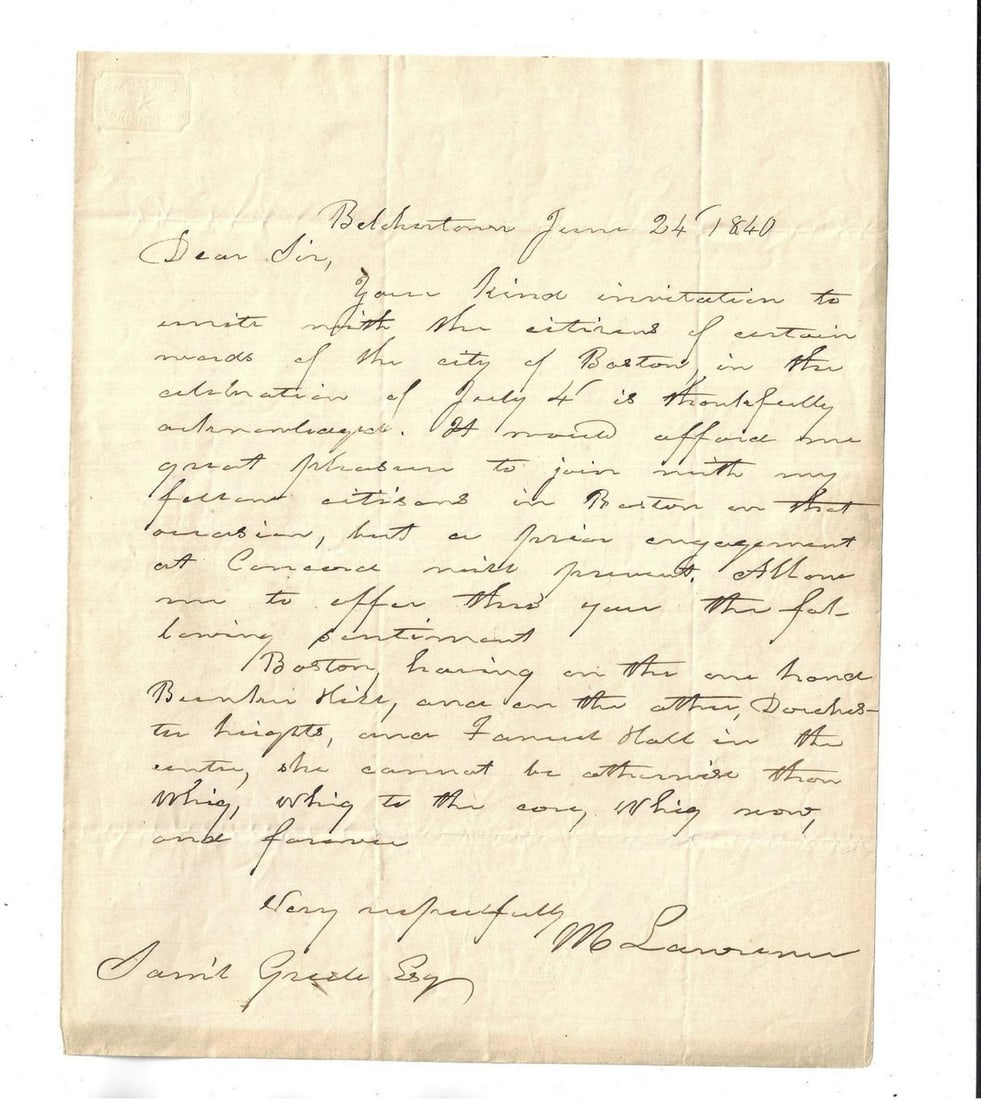 Belchertown June 24 1840
Dear Sir,
Your kind invitation to
unite with the citizens of certain
wards of the city of Boston, in the
celebration of July 4th is thankfully
acknowledged. It would afford me
great pleasure to join with my
fellow citizens in Boston on that
occasion, but a prior engagement
at Concord will prevent. Allow
me to offer thro' you the fol-
lowing sentiment
Boston, having on the one hand
Bunker Hill, and on the other, Dorches-
ter heights, and Faneuil Hall in the
centre, she cannot be otherwise than
Whig, Whig to the core, Whig now,
and forever
Very respectfully
M Lawrence
Sam'l Esq